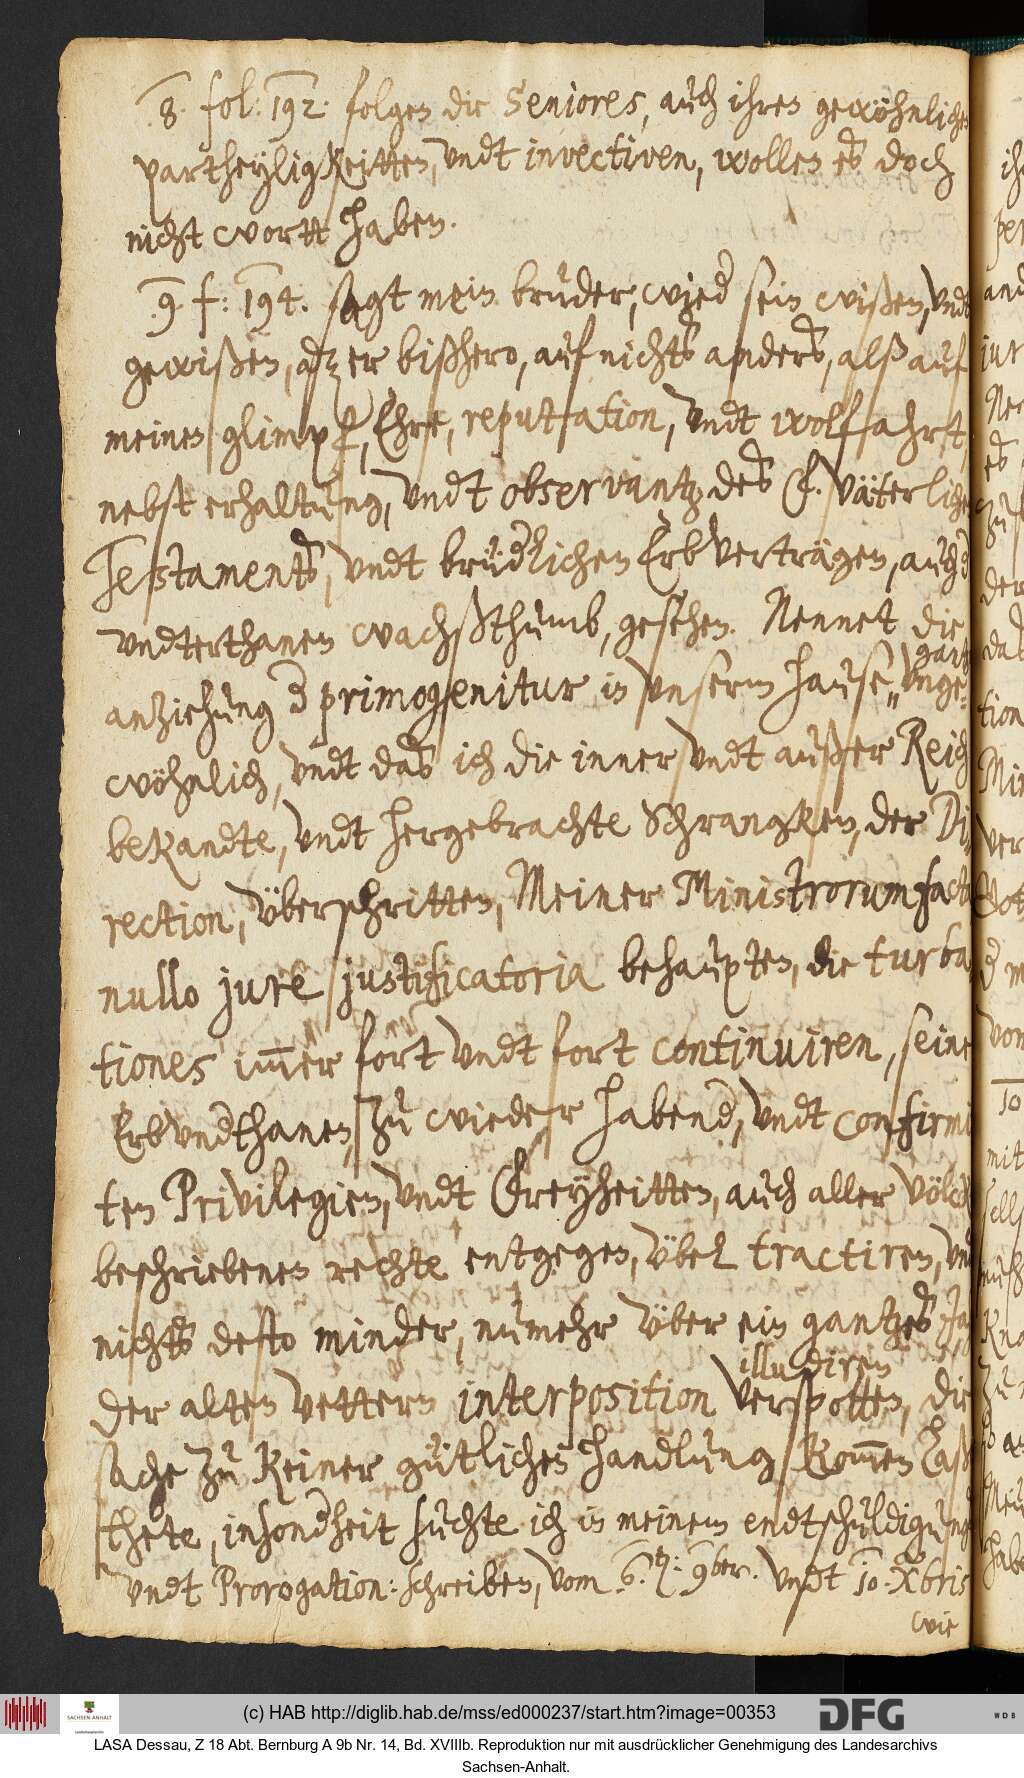 8. fol: 192. folgen die Seniores, auch ihren gewöhnlichen
partheyligkeitten, vndt invectiven, wollen es doch
nicht wortt haben.
9. f: 194. sagt mein bruder, wied sein wißen, vndt
gewißen, dz er bißhero, auf nichts anders, alß auf
meinen glimpf, Ehre, reputation, vndt wolfahrt,
nebst erhaltung, vndt observantz des H. Väterlichen
Testaments, vndt brüdlichen Erbverträgen, auch d
vndterthanen wachßthumb, gesehen. Nennet die
anziehung d primogenitur in vnserm hause, gantz vnge-
wöhnlich, vndt das ich die inner vndt außer Reich
bekandte, vndt hergebrachte Schrangken, der Di-
rection, vberschritten, Meiner Ministrorum facta
nullo jure justificatoria behaupten, die turba
tiones im̅er fort vndt fort continuiren, seine
Erbvndthanen, zu wieder habend, vndt confirmi
ten Privilegien, vndt Freyheitten, auch aller völck
beschriebenen rechte entgegen, vbel tractiren, vn
nichts desto minder, numehr vber ein gantzes Ja
der alten vettern interposition illudiren verspotten, die
sache zu keiner gütlichen handlung kom̅en laß
thete, insondheit suchte ich in meinem endtschuldigung
vndt Prorogation: schreiben, vom 6. 9ber. vndt 10. Xbris
wie
(c) HAB http://diglib.hab.de/mss/ed000237/start.htm?image=00353
SACHSEN-ANHALT
DFG
WDB
LASA Dessau, Z 18 Abt. Bernburg A 9b Nr. 14, Bd. XVIIIb. Reproduktion nur mit ausdrücklicher Genehmigung des Landesarchivs
Sachsen-Anhalt.